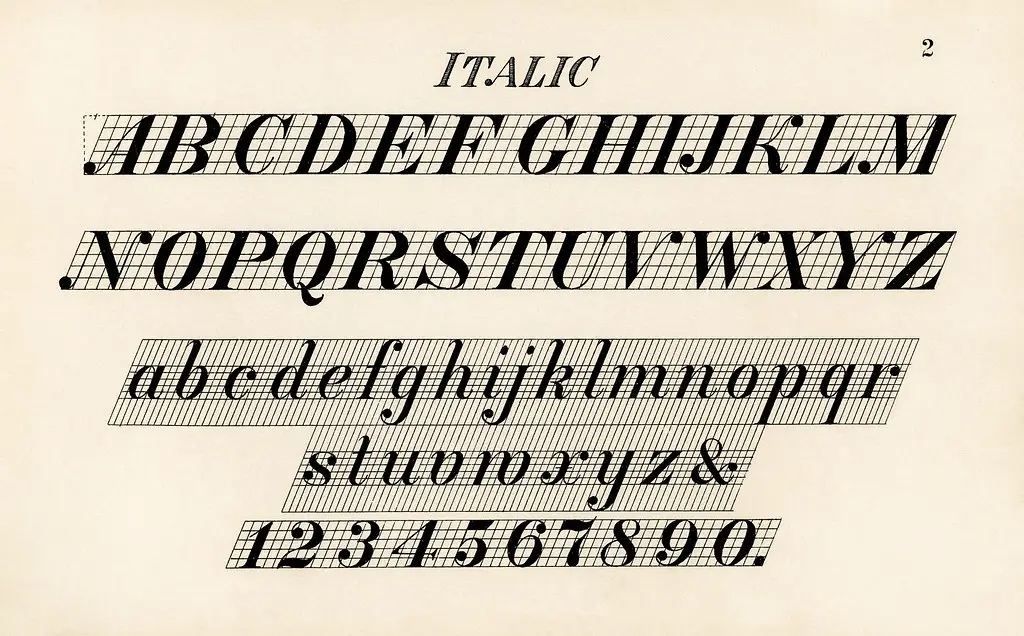 2
ITALIC
ABCDEFGHIJKLM
NOPQRSTUVWXYZ
abcdefghijklmnopqr
stuvwxyz&
1234567890.